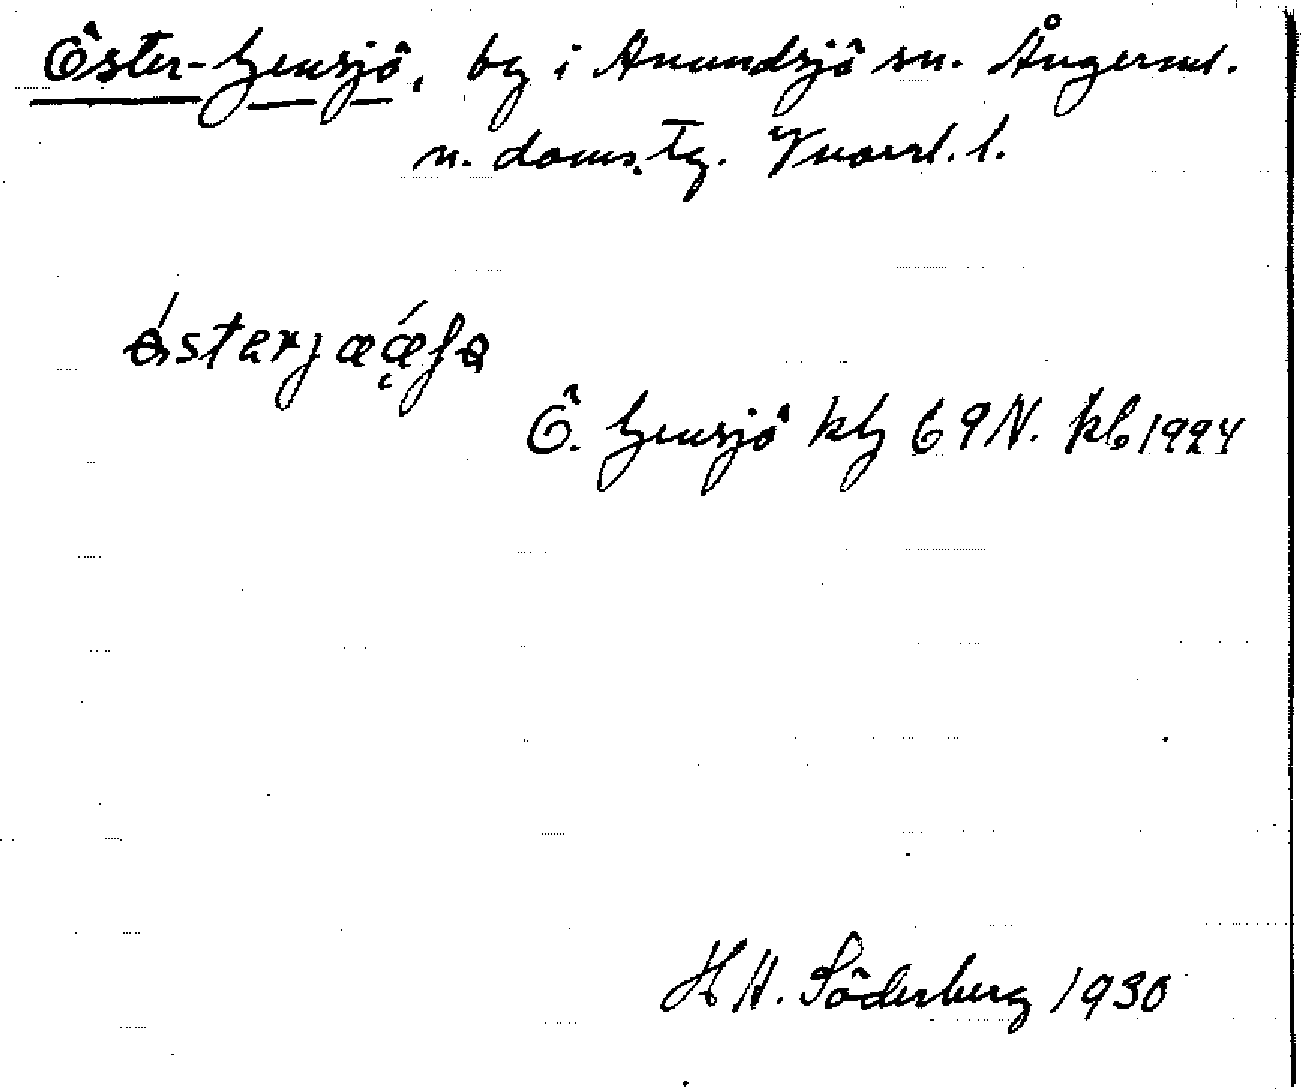 Öster-Gensjö, by i Anundsjö sn. Ångerml.
n. doms. tg. Vnorrl. l.
ö́sterjæǽ̨ʃö
Ö. Gensjö kbg 69N. kb 1924
H A. Söderberg 1930